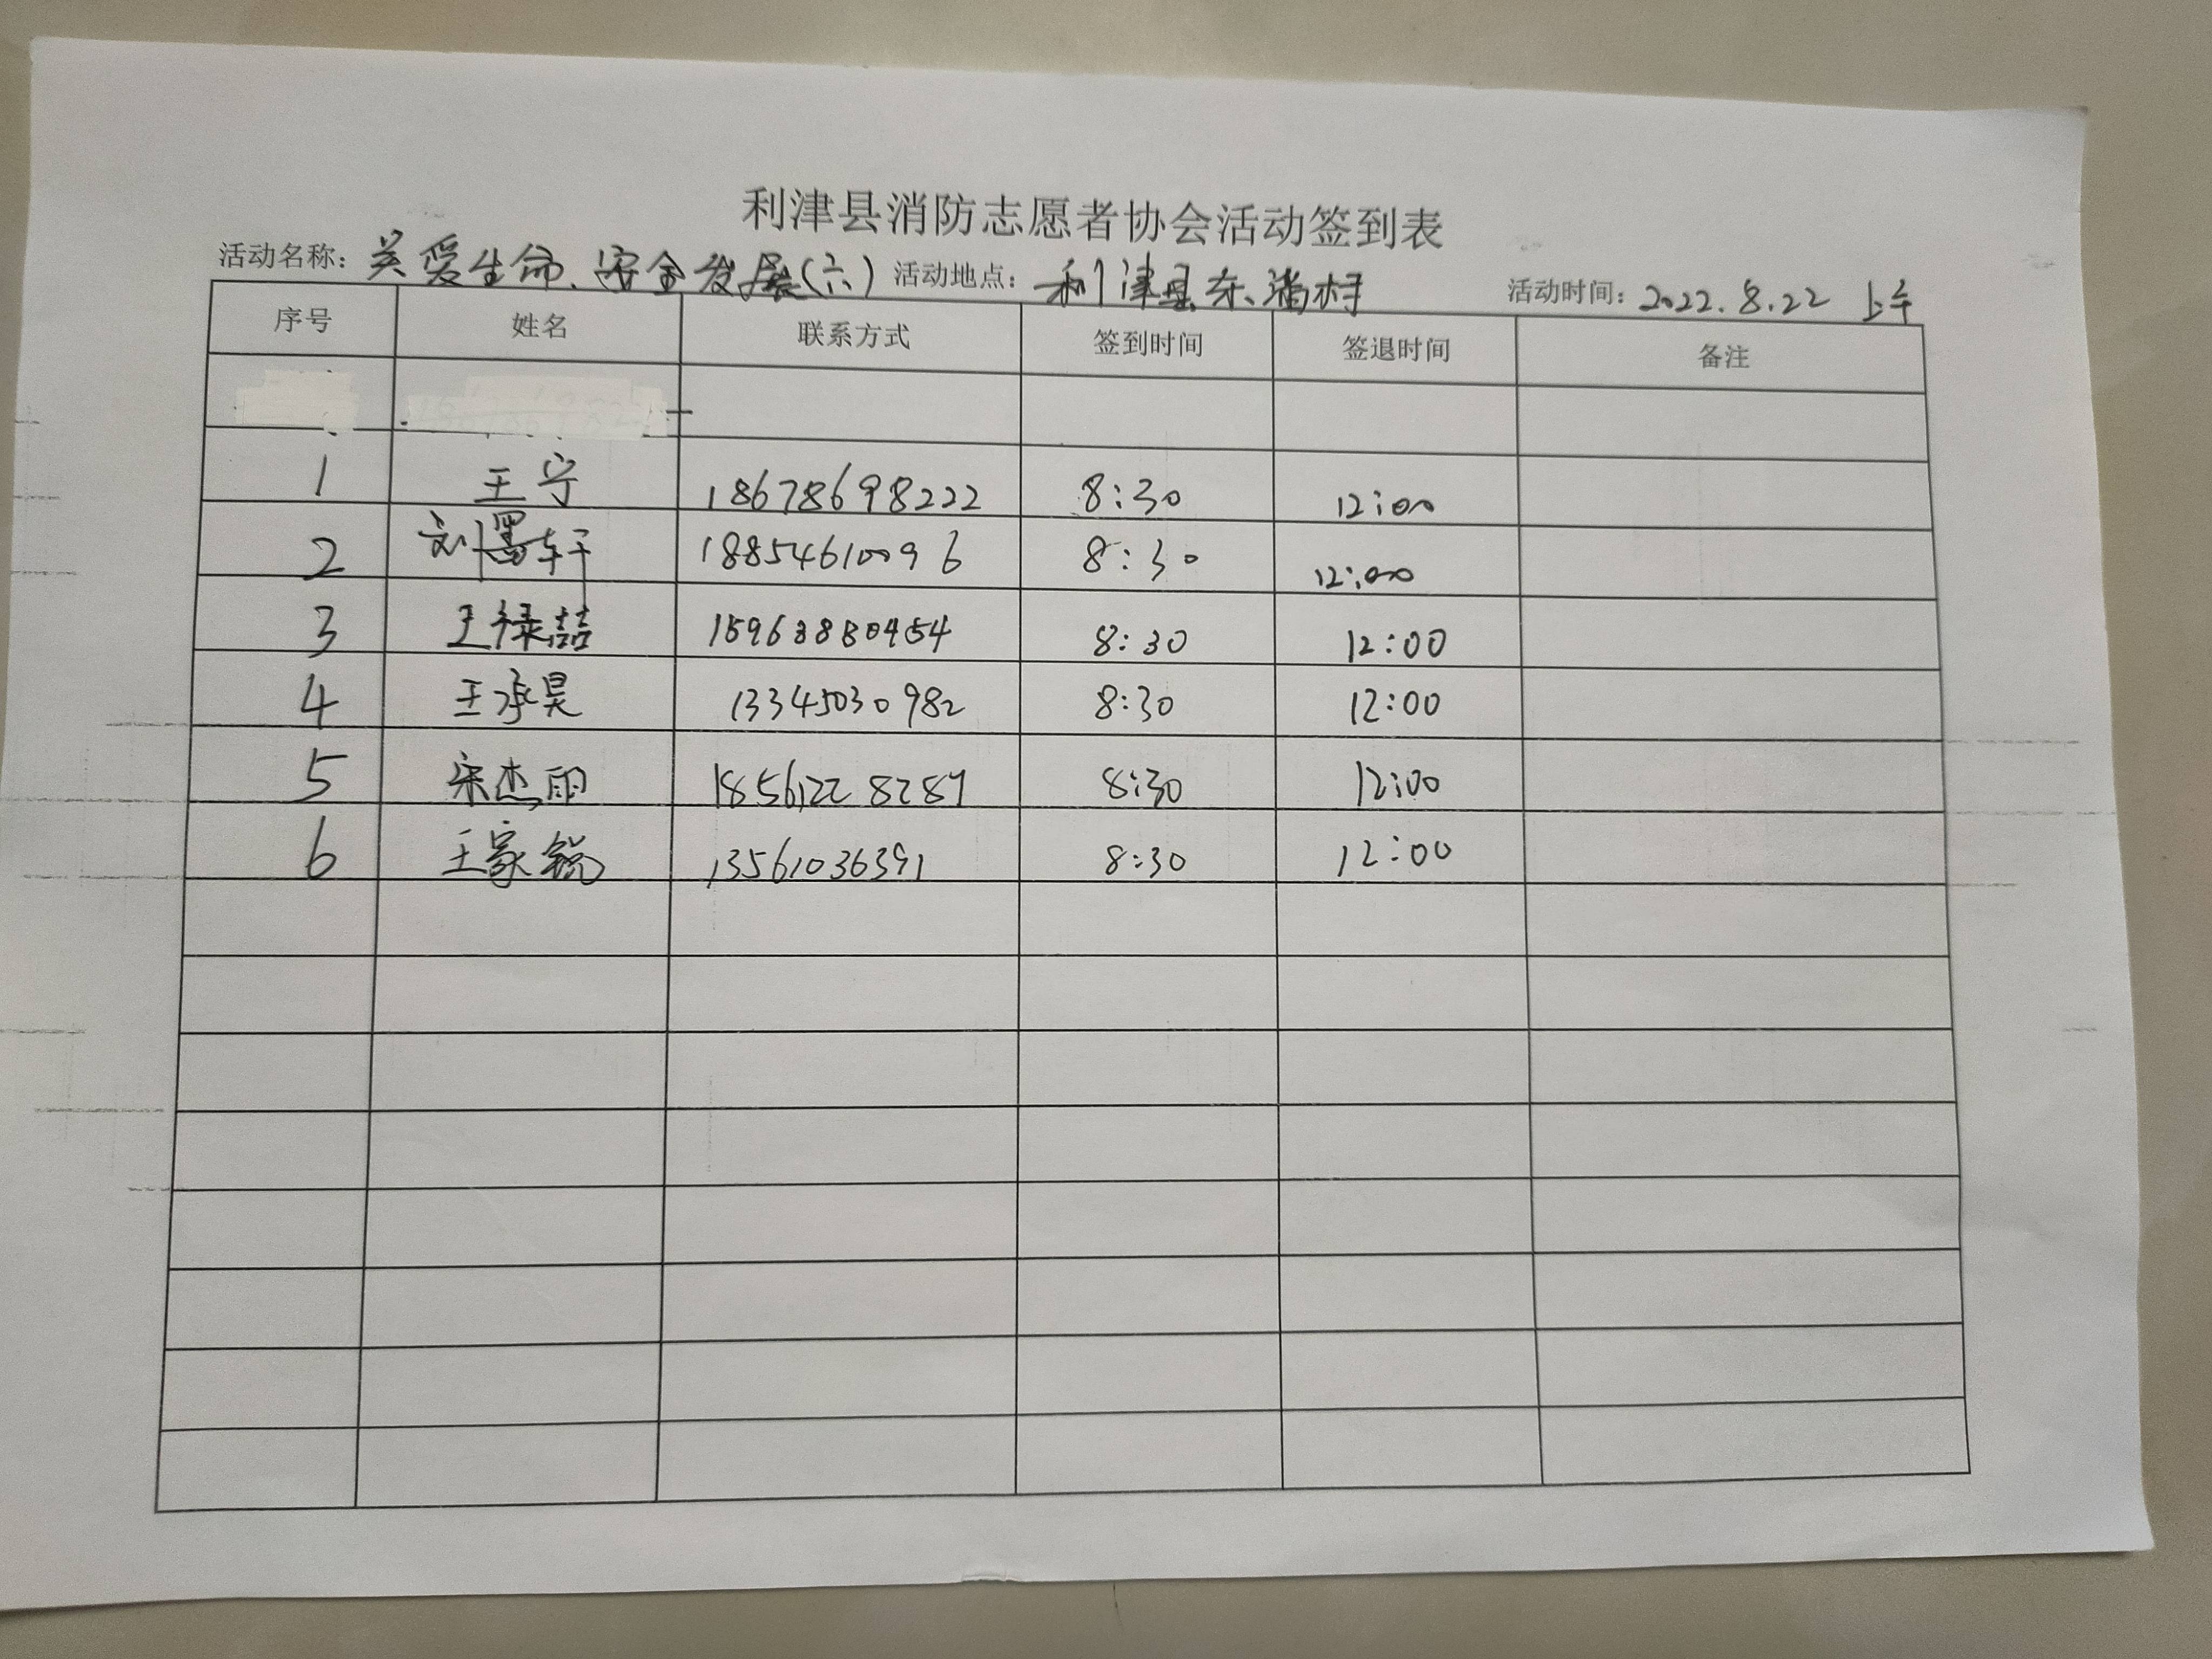 利津县消防志愿者协会活动签到表
活动名称: 关爱生命、安全发展(六) 活动地点: 利津县东 村 活动时间: 2022.8.22 上午
序号 姓名 联系方式 签到时间 签退时间 备注
1 王宁 18678698222 8:30 12:00
2 刘墨轩 18854610096 8:30 12:00
3 王禄喆 15963880454 8:30 12:00
4 王承昊 13345030982 8:30 12:00
5 宋杰雨 18561228287 8:30 12:00
6 王家锐 13561036391 8:30 12:00